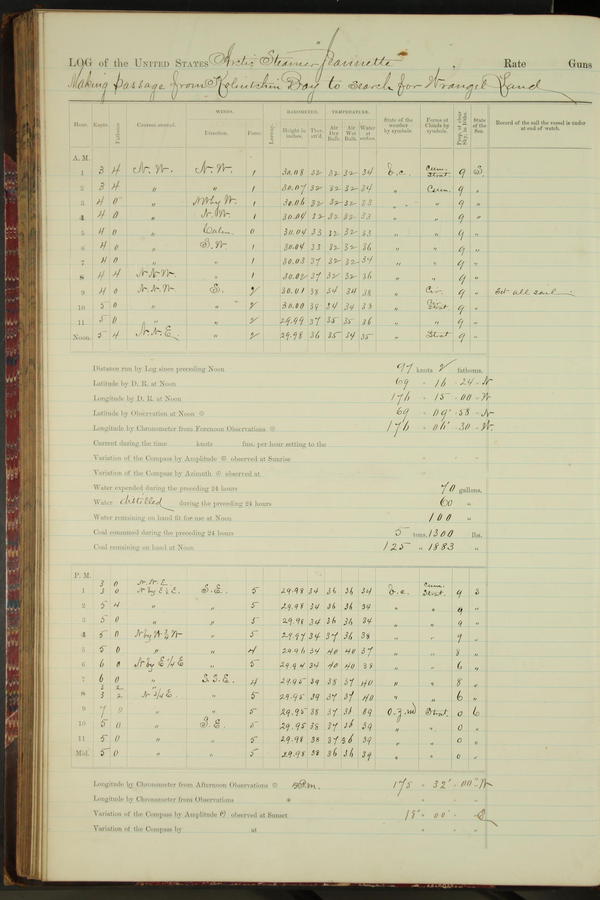 LOG of the UNITED STATES Arctic Steamer Jeannette Rate Guns
Making passage from Koliutchin Bay to search for Wrangel Land
WINDS. BAROMETER. TEMPERATURE.
Hour. Knots. Fathoms. Courses steered. Direction. Force. Leeway. Height in inches. Ther. att'd. Air Dry Bulb. Air Wet Bulb. Water at surface. State of the weather by symbols. Forms of Clouds by symbols. Prop. of clear Sky, in 10ths. State of the Sea. Record of the sail the vessel is under at end of watch.
A. M.
1 3 4 N. W. N. W. 1 30.08 32 32 32 34 b.c. Cum. Strat. 9 S.
2 3 4 " " 1 30.07 32 32 32 34 " Cum. 9 "
3 4 0 " NW by W. 1 30.06 32 32 32 33 " " 9 "
4 4 0 " N. W. 1 30.04 32 32 32 33 " " 9 "
5 4 0 " Calm. 0 30.04 33 32 32 33 " " 9 "
6 4 0 " S. W. 1 30.04 33 32 32 36 " " 9 "
7 4 0 " " 1 30.03 37 32 32 34 " " 9 "
8 4 4 N. N. W. " 1 30.02 37 32 32 36 " " 9 "
9 4 0 N. N. W. E. 2 30.01 38 34 34 38 " Cir. 9 " Set all sail
10 5 0 " " 2 30.00 39 34 34 33 " Cir. Strat. 9 "
11 5 0 " " 2 29.99 37 35 35 36 " " 9 "
Noon. 5 4 N. N. E. " 2 29.98 36 35 34 35 " Strat 9 "
Distance run by Log since preceding Noon 97 knots 2 fathoms.
Latitude by D. R. at Noon 69 ° 16 ' 24 " N
Longitude by D. R. at Noon 176 ° 15 ' 00 " W
Latitude by Observation at Noon 69 ° 09 ' 58 " N
Longitude by Chronometer from Forenoon Observations 176 ° 06 ' 30 " W.
Current during the time knots fms. per hour setting to the
Variation of the Compass by Amplitude observed at Sunrise
Variation of the Compass by Azimuth observed at
Water expended during the preceding 24 hours 70 gallons.
Water distilled during the preceding 24 hours 60 "
Water remaining on hand fit for use at Noon 100 "
Coal consumed during the preceding 24 hours 5 tons, 1300 lbs.
Coal remaining on hand at Noon 125 " 1883 "
P. M.
3 0 N. N. E.
1 3 0 N by E ½ E. S. E. 5 29.98 34 36 36 34 b.c. Cum. Strat. 9 S
2 5 4 " " 5 29.98 34 36 36 34 " " 9 "
3 5 0 " " 5 29.98 34 36 36 34 " " 9 "
4 5 0 N by W ½ W " 5 29.97 34 37 36 38 " " 9 "
5 5 0 " " 4 29.96 34 40 40 37 " " 8 "
6 6 0 N by E ¼ E " 5 29.94 34 40 40 38 " " 6 "
7 6 0 " S. S. E. 4 29.95 39 38 37 40 " " 8 "
3 2
8 3 2 N ¾ E. " 5 29.95 39 37 37 40 " " 6 "
9 7 0 " " 5 29.95 38 37 36 39 Strat. 0 6
10 5 0 " S. E. 5 29.95 38 37 36 39 " " 0 "
11 5 0 " " 5 29.98 38 37 36 39 " " 0 "
Mid. 5 0 " " 5 29.98 38 36 36 39 " " 0 "
Longitude by Chronometer from Afternoon Observations 175 ° 32 ' 00 " W
Longitude by Chronometer from Observations
Variation of the Compass by Amplitude observed at Sunset 18 ° 00 ' E
Variation of the Compass by at